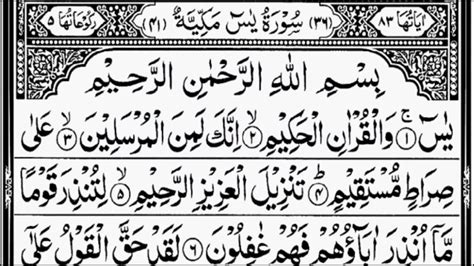 اٰيَاتُهَا ٨٣ (٣٦) سُوْرَةُ يٰسٓ مَكِّيَّةٌ (٤١) رُكُوْعَاتُهَا ٥
بِسْمِ اللّٰهِ الرَّحْمٰنِ الرَّحِيْمِ
يٰسٓ ۚ﴿١﴾ وَالْقُرْاٰنِ الْحَكِيْمِ ﴿٢﴾ اِنَّكَ لَمِنَ الْمُرْسَلِيْنَ ﴿٣﴾ عَلٰى
صِرَاطٍ مُّسْتَقِيْمٍ ﴿٤﴾ تَنْزِيْلَ الْعَزِيْزِ الرَّحِيْمِ ﴿٥﴾ لِتُنْذِرَ قَوْمًا
مَّاۤ اُنْذِرَ اٰبَآؤُهُمْ فَهُمْ غٰفِلُوْنَ ﴿٦﴾ لَقَدْ حَقَّ الْقَوْلُ عَلٰۤى